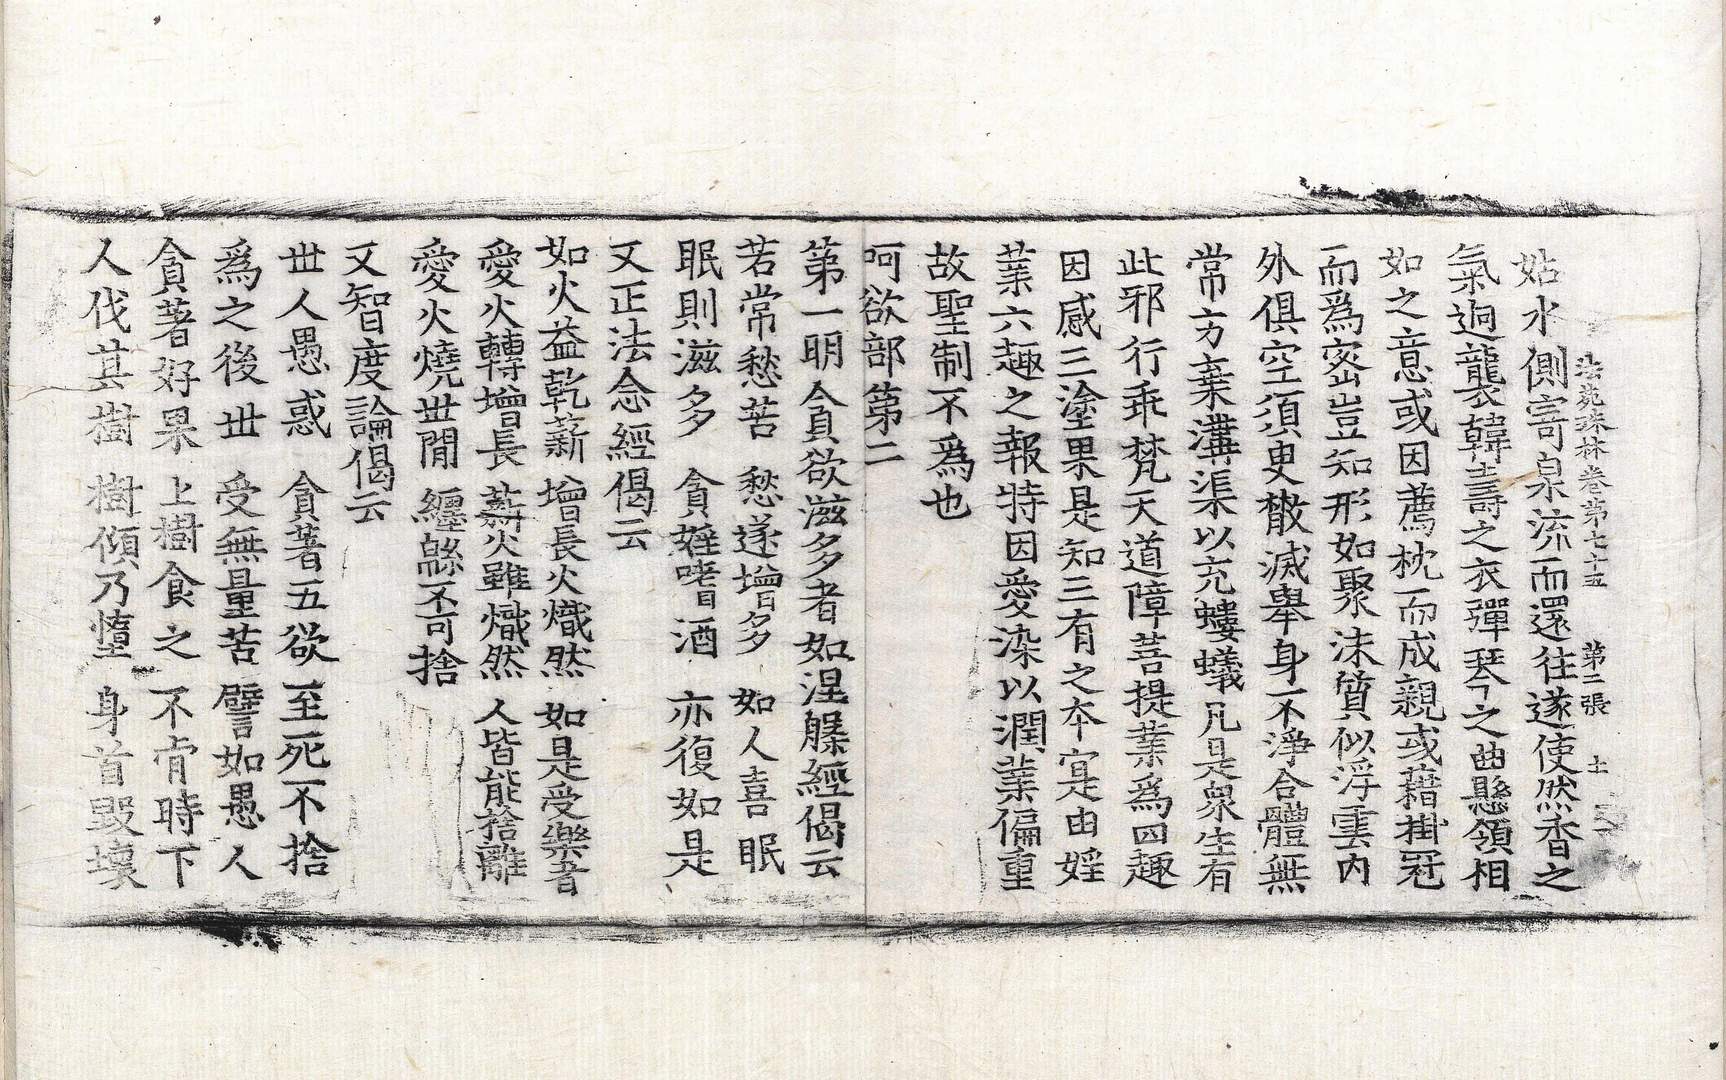 法苑珠林卷第七十五　第二張　土
姑水側寄泉流而還往遂使然香之
氣迥襲韓壽之衣彈琴之曲懸領相
如之意或因薦枕而成親或藉掛冠
而爲密豈知形如聚沫質似浮雲內
外俱空須臾散滅舉身不淨合體無
常方棄溝渠以充螻蟻凡是衆生有
此邪行乖梵天道障菩提業爲四趣
因感三塗果是知三有之本寔由婬
業六趣之報特因愛染以潤業偏重
故聖制不爲也
呵欲部第二
第一明貪欲滋多者如涅槃經偈云
若常愁苦　愁遂增多　如人喜眠
眠則滋多　貪婬嗜酒　亦復如是
又正法念經偈云
如火益乾薪　增長火熾然　如是受樂者
愛火轉增長　薪火雖熾然　人皆能捨離
愛火燒世間　纏緜不可捨
又智度論偈云
世人愚惑　貪著五欲　至死不捨
爲之後世　受無量苦　譬如愚人
貪著好果　上樹食之　不肯時下
人伐其樹　樹傾乃墮　身首毀壞